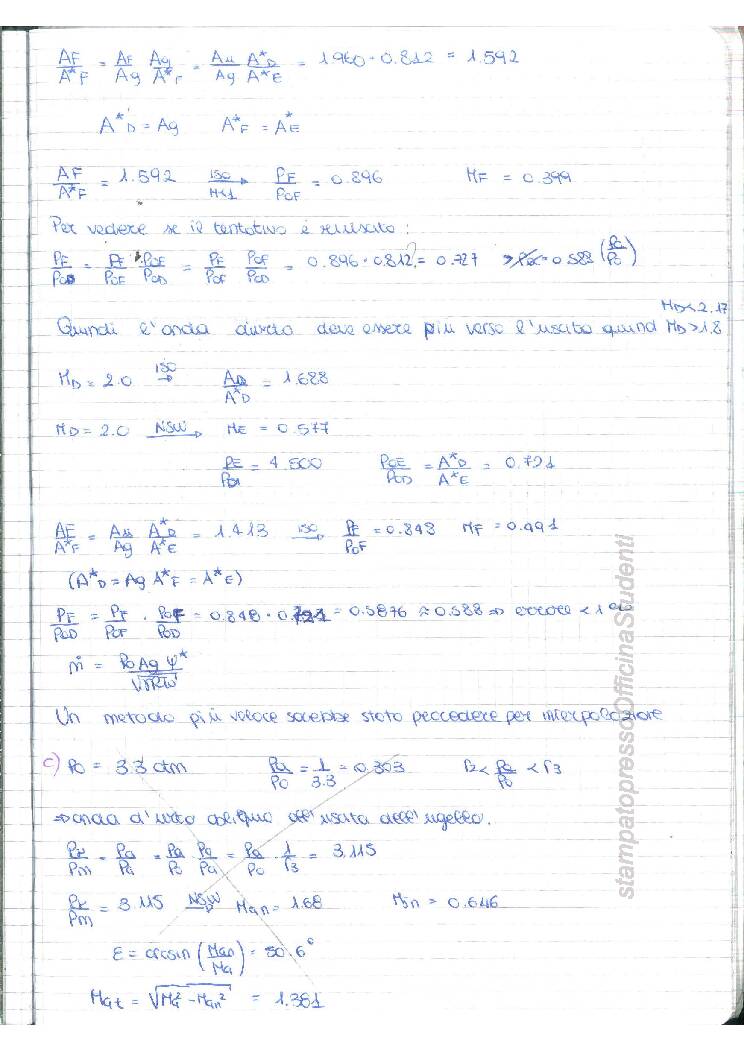 AF/A*F = AF/Ag Ag/A*F = Au/Ag A*D/A*E = 1960 · 0.812 = 1.592
A*D = Ag A*F = A*E
AF/A*F = 1.592 ISO→ M<1 PF/POF = 0.896 MF = 0.399
Per vedere se il tentativo è riuscito:
PF/POD = PF/POF POF/POD = PF/POF POF/POD = 0.896 · 0.812 = 0.727 > 0.588 (Pa/PO)
MD < 2.17
Quindi l'onda d'urto deve essere più verso l'uscita quindi MD > 1.8
MD = 2.0 ISO→ AD/A*D = 1.688
MD = 2.0 NSW→ ME = 0.577
PE/PD = 4.500 POE/POD = A*D/A*E = 0.721
AF/A*F = Au/Ag A*D/A*E = 1.413 ISO→ PF/POF = 0.848 MF = 0.491
(A*D = Ag A*F = A*E)
PF/POD = PF/POF · POF/POD = 0.848 · 0.721 = 0.5876 ≈ 0.588 ⇒ errore < 1%
ṁ = PO Ag ψ*/√RTO
Un metodo più veloce sarebbe stato procedere per interpolazione
c) PO = 3.3 atm Pa/PO = 1/3.3 = 0.303 r2 < Pa/PO < r3
⇒ onda d'urto obliquo all'uscita dell'ugello.
= Pa/PO · 1/r3 = 3.115
= 3.115 NSW→ M4n = 1.68 Mjn = 0.646
ε = arcsin (M4n/M4) = 50.6°
M4t = √M4² - M4n² = 1.381
stampatopressoOfficinaStudenti